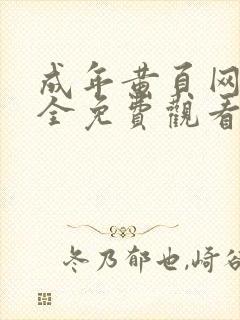 成年黄頁网
全免費觀看
冬乃郁也,崎谷